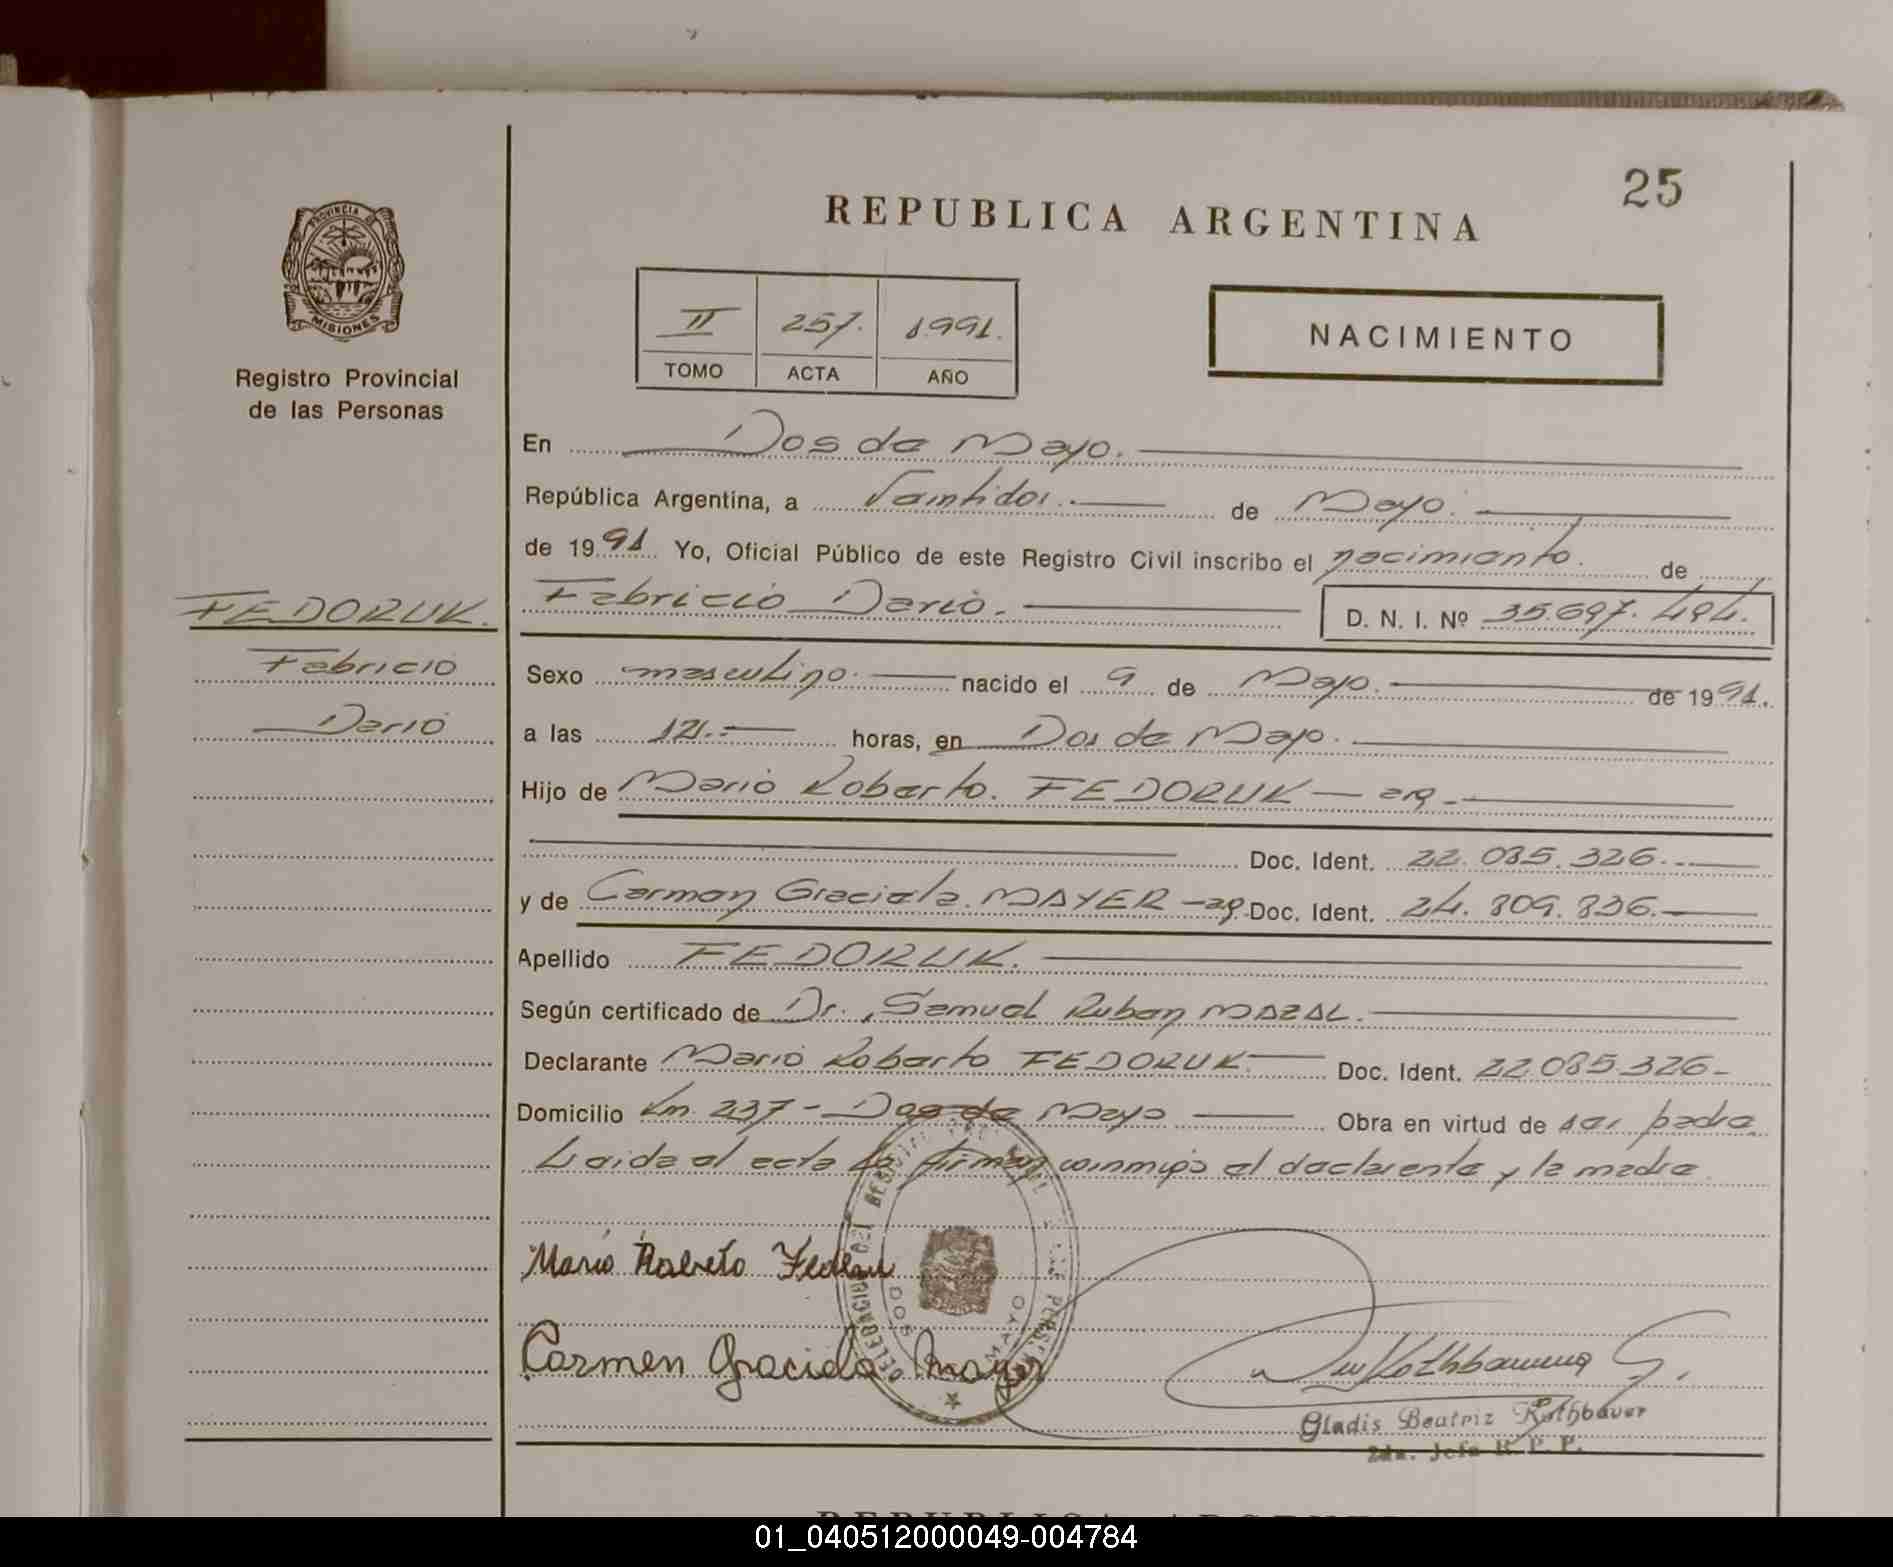 25
REPUBLICA ARGENTINA
PROVINCIA DE
MISIONES
Registro Provincial
de las Personas
II 257. 1991.
TOMO ACTA AÑO
NACIMIENTO
En Dos de Mayo.
República Argentina, a Veintidos. de Mayo.
de 1991 Yo, Oficial Público de este Registro Civil inscribo el nacimiento. de
FEDORUK.
Fabricio Dario. D. N. I. Nº 35.697.494.
Fabricio
Sexo masculino. nacido el 9 de Mayo. de 1991.
Dario
a las 12.- horas, en Dos de Mayo.
Hijo de Mario Roberto. FEDORUK - arg.
Doc. Ident. 22.085.326.
y de Carmen Graciela MAYER - arg. Doc. Ident. 24.809.836.
Apellido FEDORUK.
Según certificado de Dr. Samuel Ruben MAZAL.
Declarante Mario Roberto FEDORUK Doc. Ident. 22.085.326-
Domicilio Km. 237 - Dos de Mayo Obra en virtud de ser padre
Leida el acta la firman conmigo el declarante y la madre
Mario Roberto
Carmen Graciela Mayer
DOS MAYO
Gladis Beatriz Rothbauer
2da. Jefa R. P. P.
01_040512000049-004784